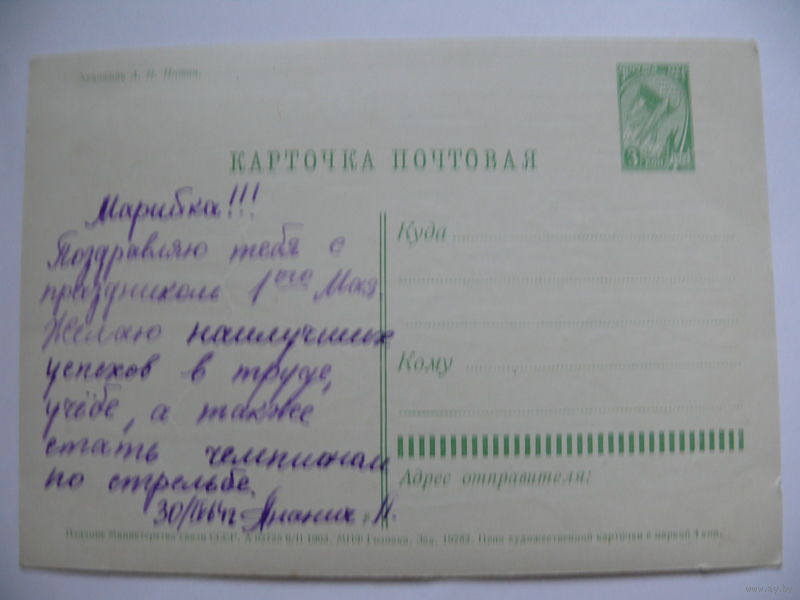 Художник А. П. Плетнев.
3 коп
КАРТОЧКА ПОЧТОВАЯ
Марибка!!!
Поздравляю тебя с
праздником 1ого Мая.
Желаю наилучших
успехов в труде,
учёбе, а также
стать чемпионом
по стрельбе.
30/IV 64 г
Куда
Кому
Адрес отправителя:
Издание Министерства связи СССР. 1963. МПФ Гознака. Зак. 10263. Цена художественной карточки с маркой 4 коп.
www.ay.by